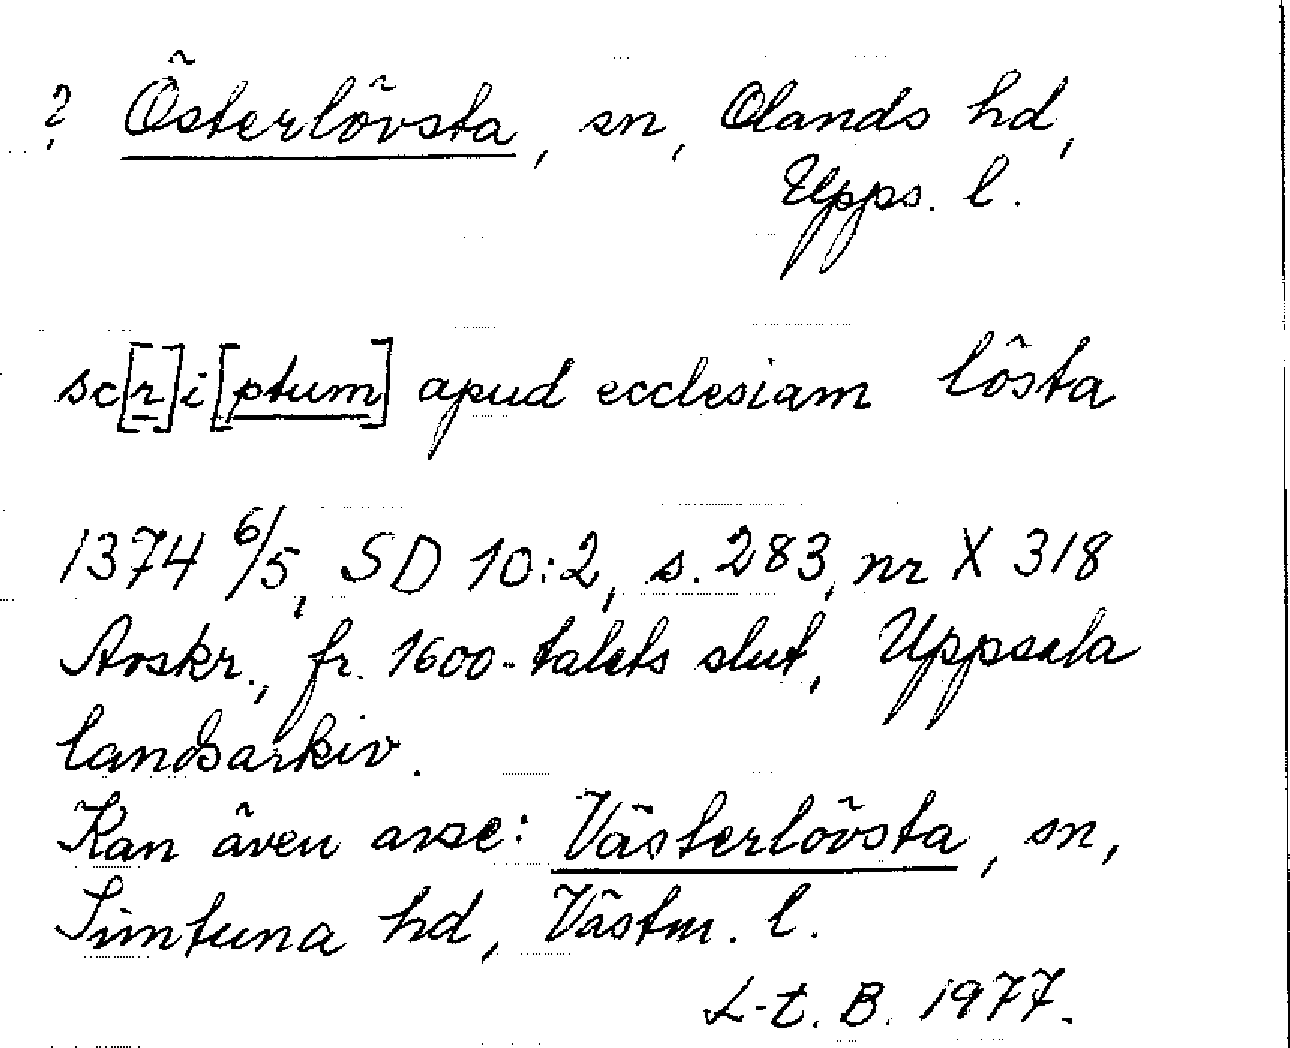 ? Österlövsta, sn, Olands hd,
Upps. l.
sc[r]i[ptum] apud ecclesiam lösta
1374 6/5, SD 10:2, s. 283, nr X 318
Avskr., fr. 1600-talets slut, Uppsala
landsarkiv.
Kan även avse: Västerlövsta, sn,
Simtuna hd, Västm. l.
L-t. B. 1977.